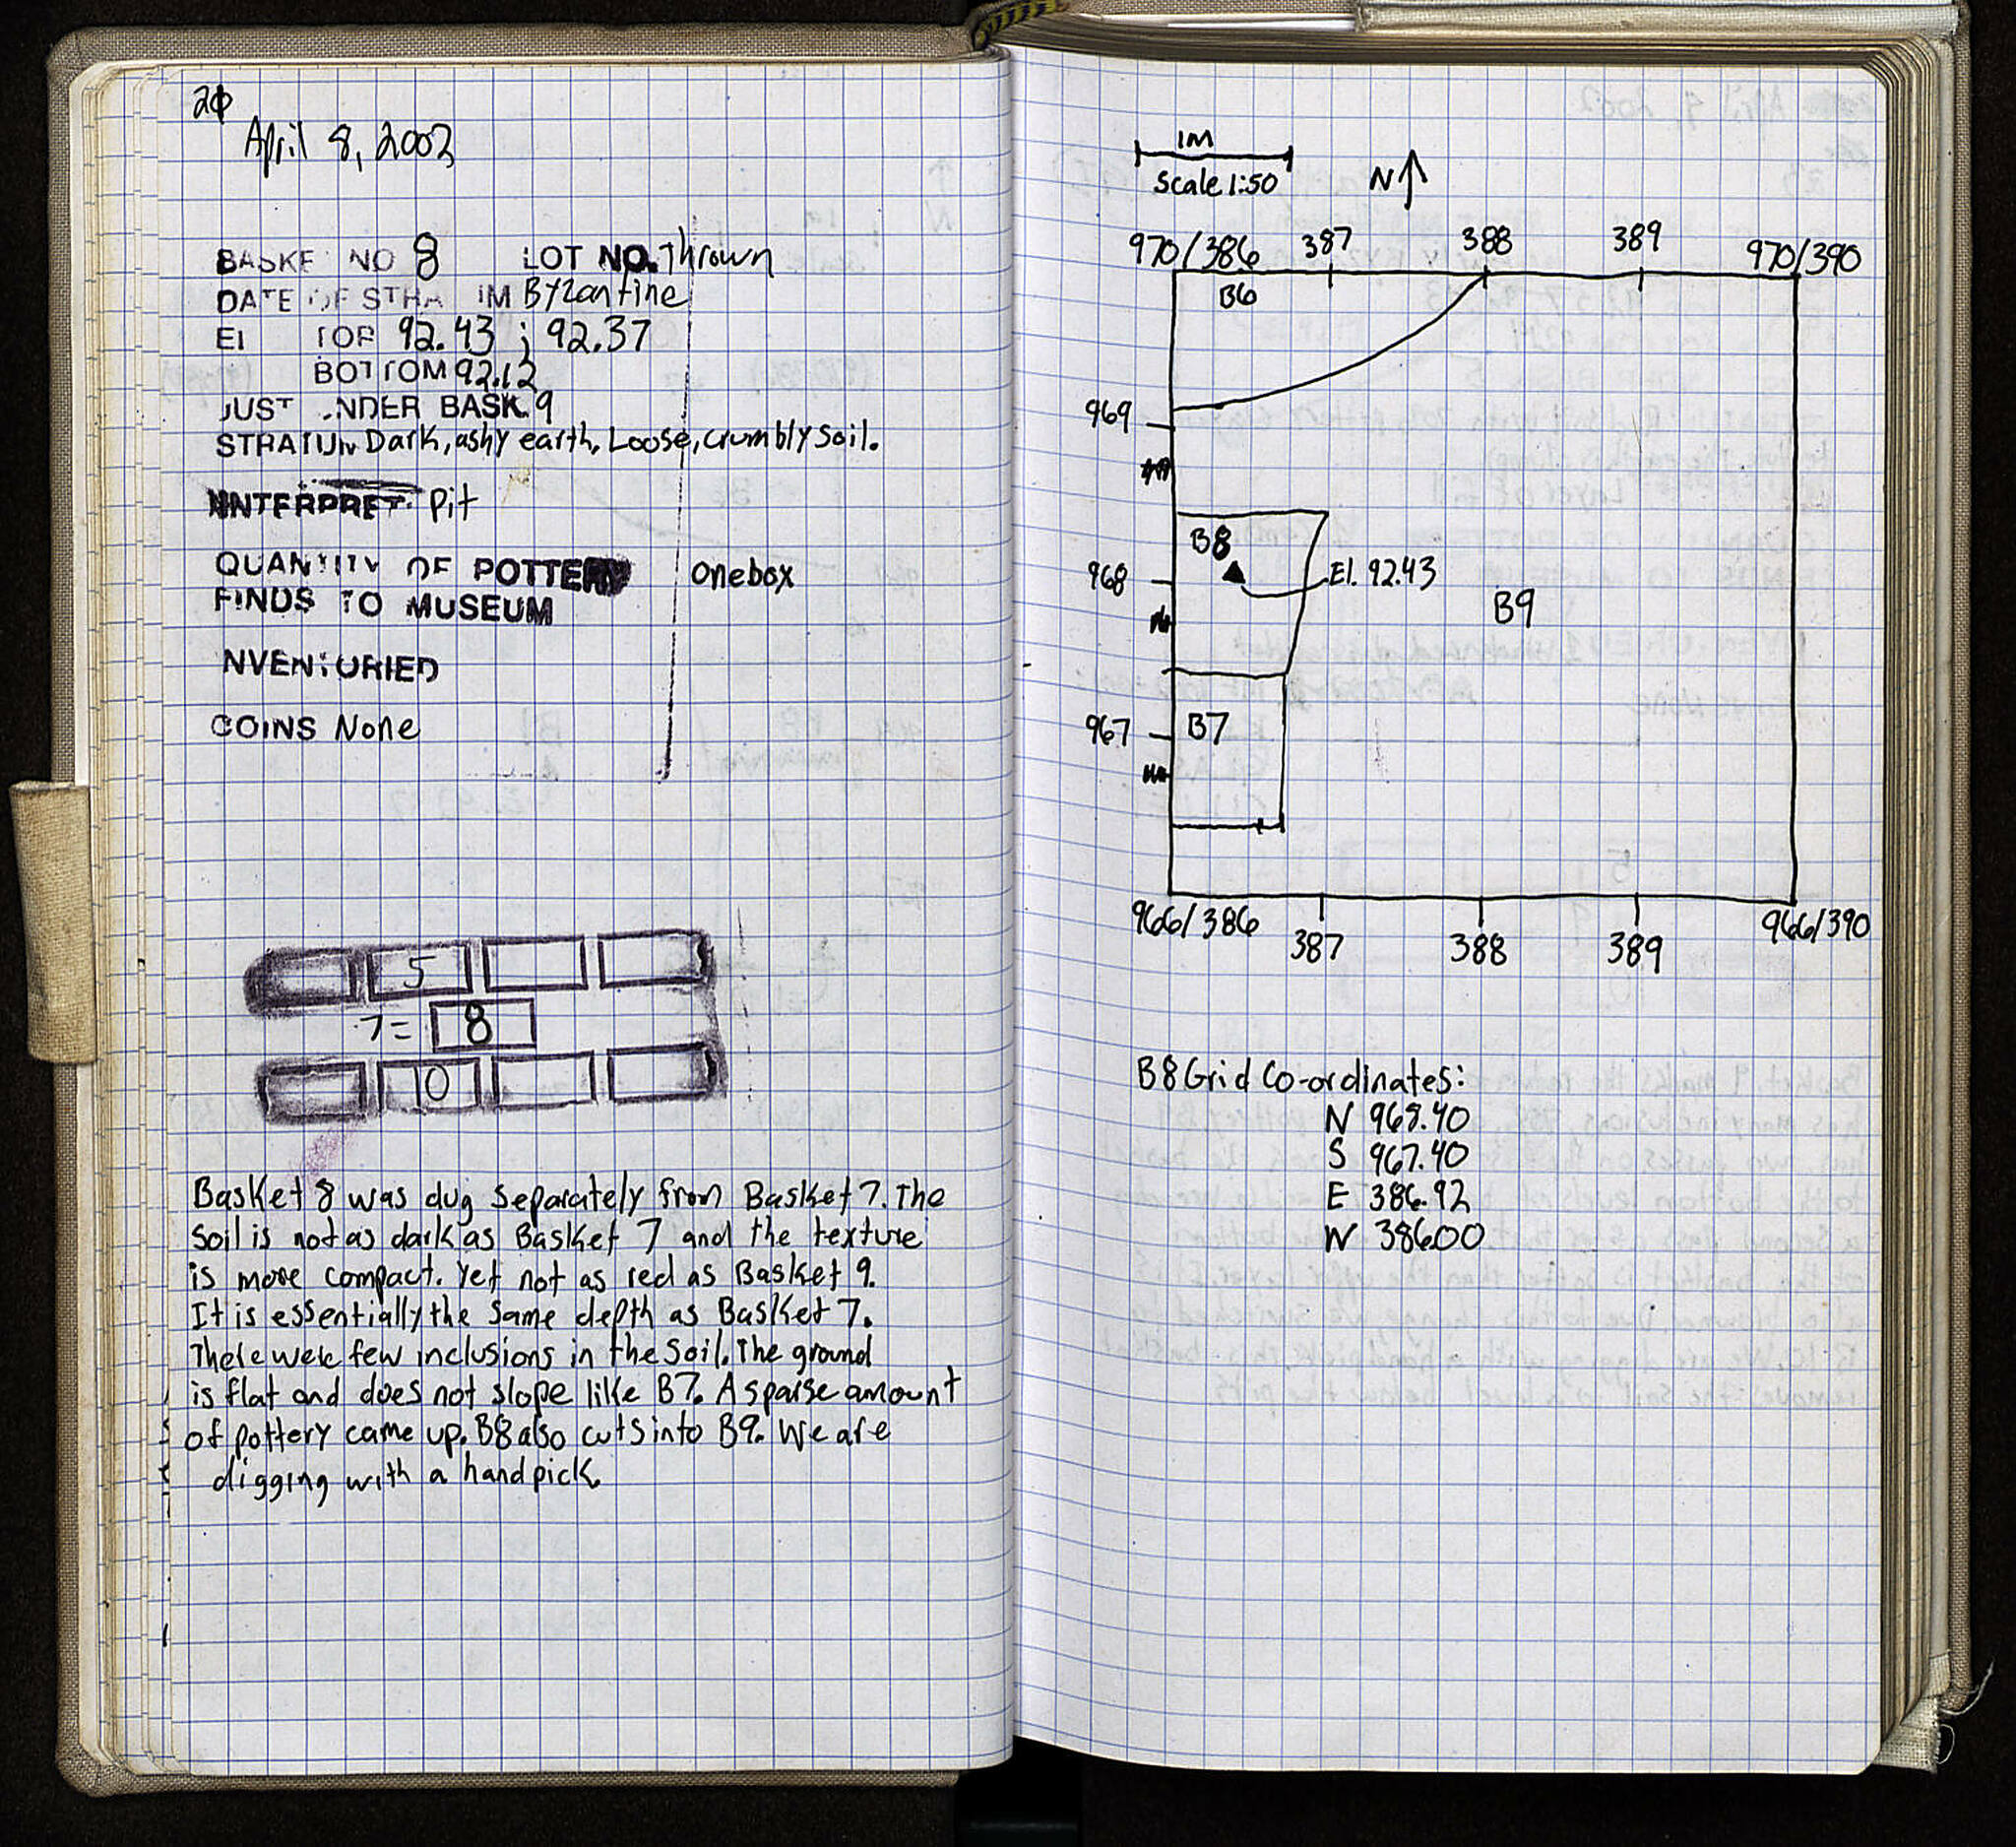 20
April 8, 2002
BASKE NO 8 LOT NO. Thrown
DATE OF STRA M Byzantine
El TOP 92.43 ; 92.37
BOTTOM 92.12
JUST UNDER BASK. 9
STRATUM Dark, ashy earth. Loose, crumbly soil.
INTERPRET. Pit
QUANTITY OF POTTERY one box
FINDS TO MUSEUM
NVENTORIED
COINS None
5
7 = 8
10
Basket 8 was dug separately from Basket 7. The
soil is not as dark as Basket 7 and the texture
is more compact. Yet not as red as Basket 9.
It is essentially the same depth as Basket 7.
There were few inclusions in the soil. The ground
is flat and does not slope like B7. A sparse amount
of pottery came up. B8 also cuts into B9. We are
digging with a handpick.
1M
Scale 1:50
N
970/386 387 388 389 970/390
B6
969
B8
968
El. 92.43
B9
967
B7
966/386 387 388 389 966/390
B8 Grid Co-ordinates:
N 968.40
S 967.40
E 386.92
W 386.00